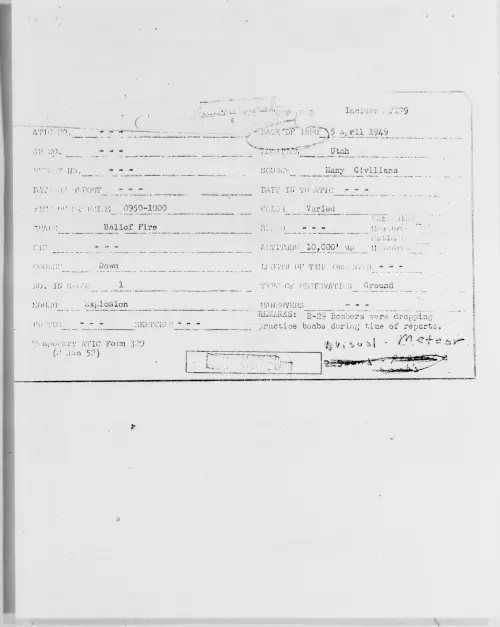 Incident
ATIC NO. - - -
DATE OF INFO 5 April 1949
AF NO. - - -
LOCATION Utah
REPORT NO. - - -
SOURCE Many Civilians
DATE OF REPORT - - -
DATE IN TO ATIC - - -
TIME OF SIGHTING 0950-1000
COLOR Varied
SHAPE Ballof Fire
SPEED - - -
SIZE - - -
ALTITUDE 10,000' up
COURSE Down
LENGTH OF TIME OBSERVED - - -
NO. IN GROUP 1
TYPE OF OBSERVATION Ground
SOUND Explosion
MANEUVERS - - -
REMARKS: B-29 Bombers were dropping
practice bombs during time of reports.
PHOTOS - - - SKETCHES - - -
Temporary ATIC Form 329
(2 Jan 52)
Visual - Meteor